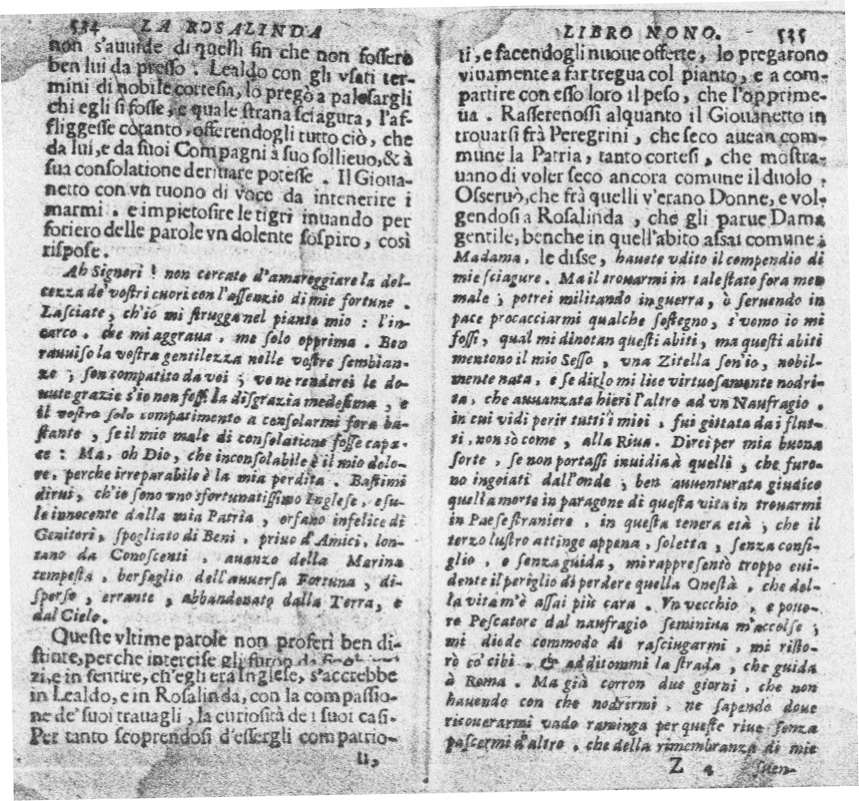 534 LA ROSALINDA
non s'auuide di quelli sin che non fossero
ben lui da presso. Lealdo con gli vsati ter-
mini di nobile cortesia, lo pregò a palesargli
chi egli si fosse, e quale strana sciagura, l'af-
fliggesse cotanto, offerendogli tutto ciò, che
da lui, e da suoi Compagni à suo sollieuo, & à
sua consolatione deriuare potesse. Il Gioua-
netto con vn tuono di voce da intenerire i
marmi, e impietosire le tigri inuando per
foriero delle parole vn dolente sospiro, così
rispose.
Ah Signori! non cercate d'amareggiare la dol-
cezza de' vostri cuori con l'assenzio di mie fortune.
Lasciate, ch'io mi strugga nel pianto mio: l'in-
carco, che mi aggraua, me solo opprima. Ben
rauuiso la vostra gentilezza nelle vostre sembian-
ze; son compatito da voi; ve ne renderei le do-
uute grazie s'io non fossi la disgrazia medesima, e
il vostro solo compatimento a consolarmi fora ba-
stante, se il mio male di consolatione fosse capa-
ce: Ma, oh Dio, che inconsolabile è il mio dolo-
re, perche irreparabile è la mia perdita. Bastimi
dirui, ch'io sono vno sfortunatissimo Inglese, esu-
le innocente dalla mia Patria, orfano infelice di
Genitori, spogliato di Beni, priuo d'Amici, lon-
tano da Conoscenti, auanzo della Marina
tempesta, bersaglio dell'auuersa Fortuna, di-
sperso, errante, abbandonato dalla Terra, e
dal Cielo.
Queste vltime parole non proferì ben di-
stinte, perche intercise gli furno da
zi, e in sentire, ch'egli era Inglese, s'accrebbe
in Lealdo, e in Rosalinda, con la compassio-
ne de' suoi trauagli, la curiosità de i suoi casi.
Per tanto scoprendosi d'essergli compatrio-
ti,
LIBRO NONO. 535
ti, e facendogli nuoue offerte, lo pregarono
viuamente a far tregua col pianto, e a com-
partire con esso loro il peso, che l'opprime-
ua. Rasserenossi alquanto il Giouanetto in
trouarsi frà Peregrini, che seco auean com-
mune la Patria, tanto cortesi, che mostra-
uano di voler seco ancora comune il duolo.
Osseruò, che frà quelli v'erano Donne, e vol-
gendosi a Rosalinda, che gli parue Dama
gentile, benche in quell'abito assai comune;
Madama, le disse, hauete vdito il compendio di
mie sciagure. Ma il trouarmi in tale stato fora men
male; potrei militando in guerra, ò seruendo in
pace procacciarmi qualche sostegno, s'vomo io mi
fossi, qual mi dinotan questi abiti, ma questi abiti
mentono il mio Sesso, vna Zitella son'io, nobil-
mente nata, e se dirlo mi lice virtuosamente nodri-
ta, che auuanzata hieri l'altro ad vn Naufragio,
in cui vidi perir tutti i miei, fui gittata da i flut-
ti, non sò come, alla Riua. Direi per mia buona
sorte, se non portassi inuidia à quelli, che furo-
no ingoiati dall'onde; ben auuenturata giudico
quella morte in paragone di questa vita in trouarmi
in Paese straniere, in questa tenera età; che il
terzo lustro attinge appena, soletta, senza consi-
glio, e senza guida, mi rappresentò troppo eui-
dente il periglio di perdere quella Onestà, che del-
la vita m'è assai più cara. Vn vecchio, e poue-
ro Pescatore dal naufragio semiuiua m'accolse;
mi diede commodo di rasciugarmi, mi risto-
rò co' cibi, & additommi la strada, che guida
à Roma. Ma già corron due giorni, che non
hauendo con che nodrirmi, ne sapendo doue
ricouerarmi vado raminga per queste riue senza
pascermi d'altro, che della rimembranza di mie
Z 4 suen-